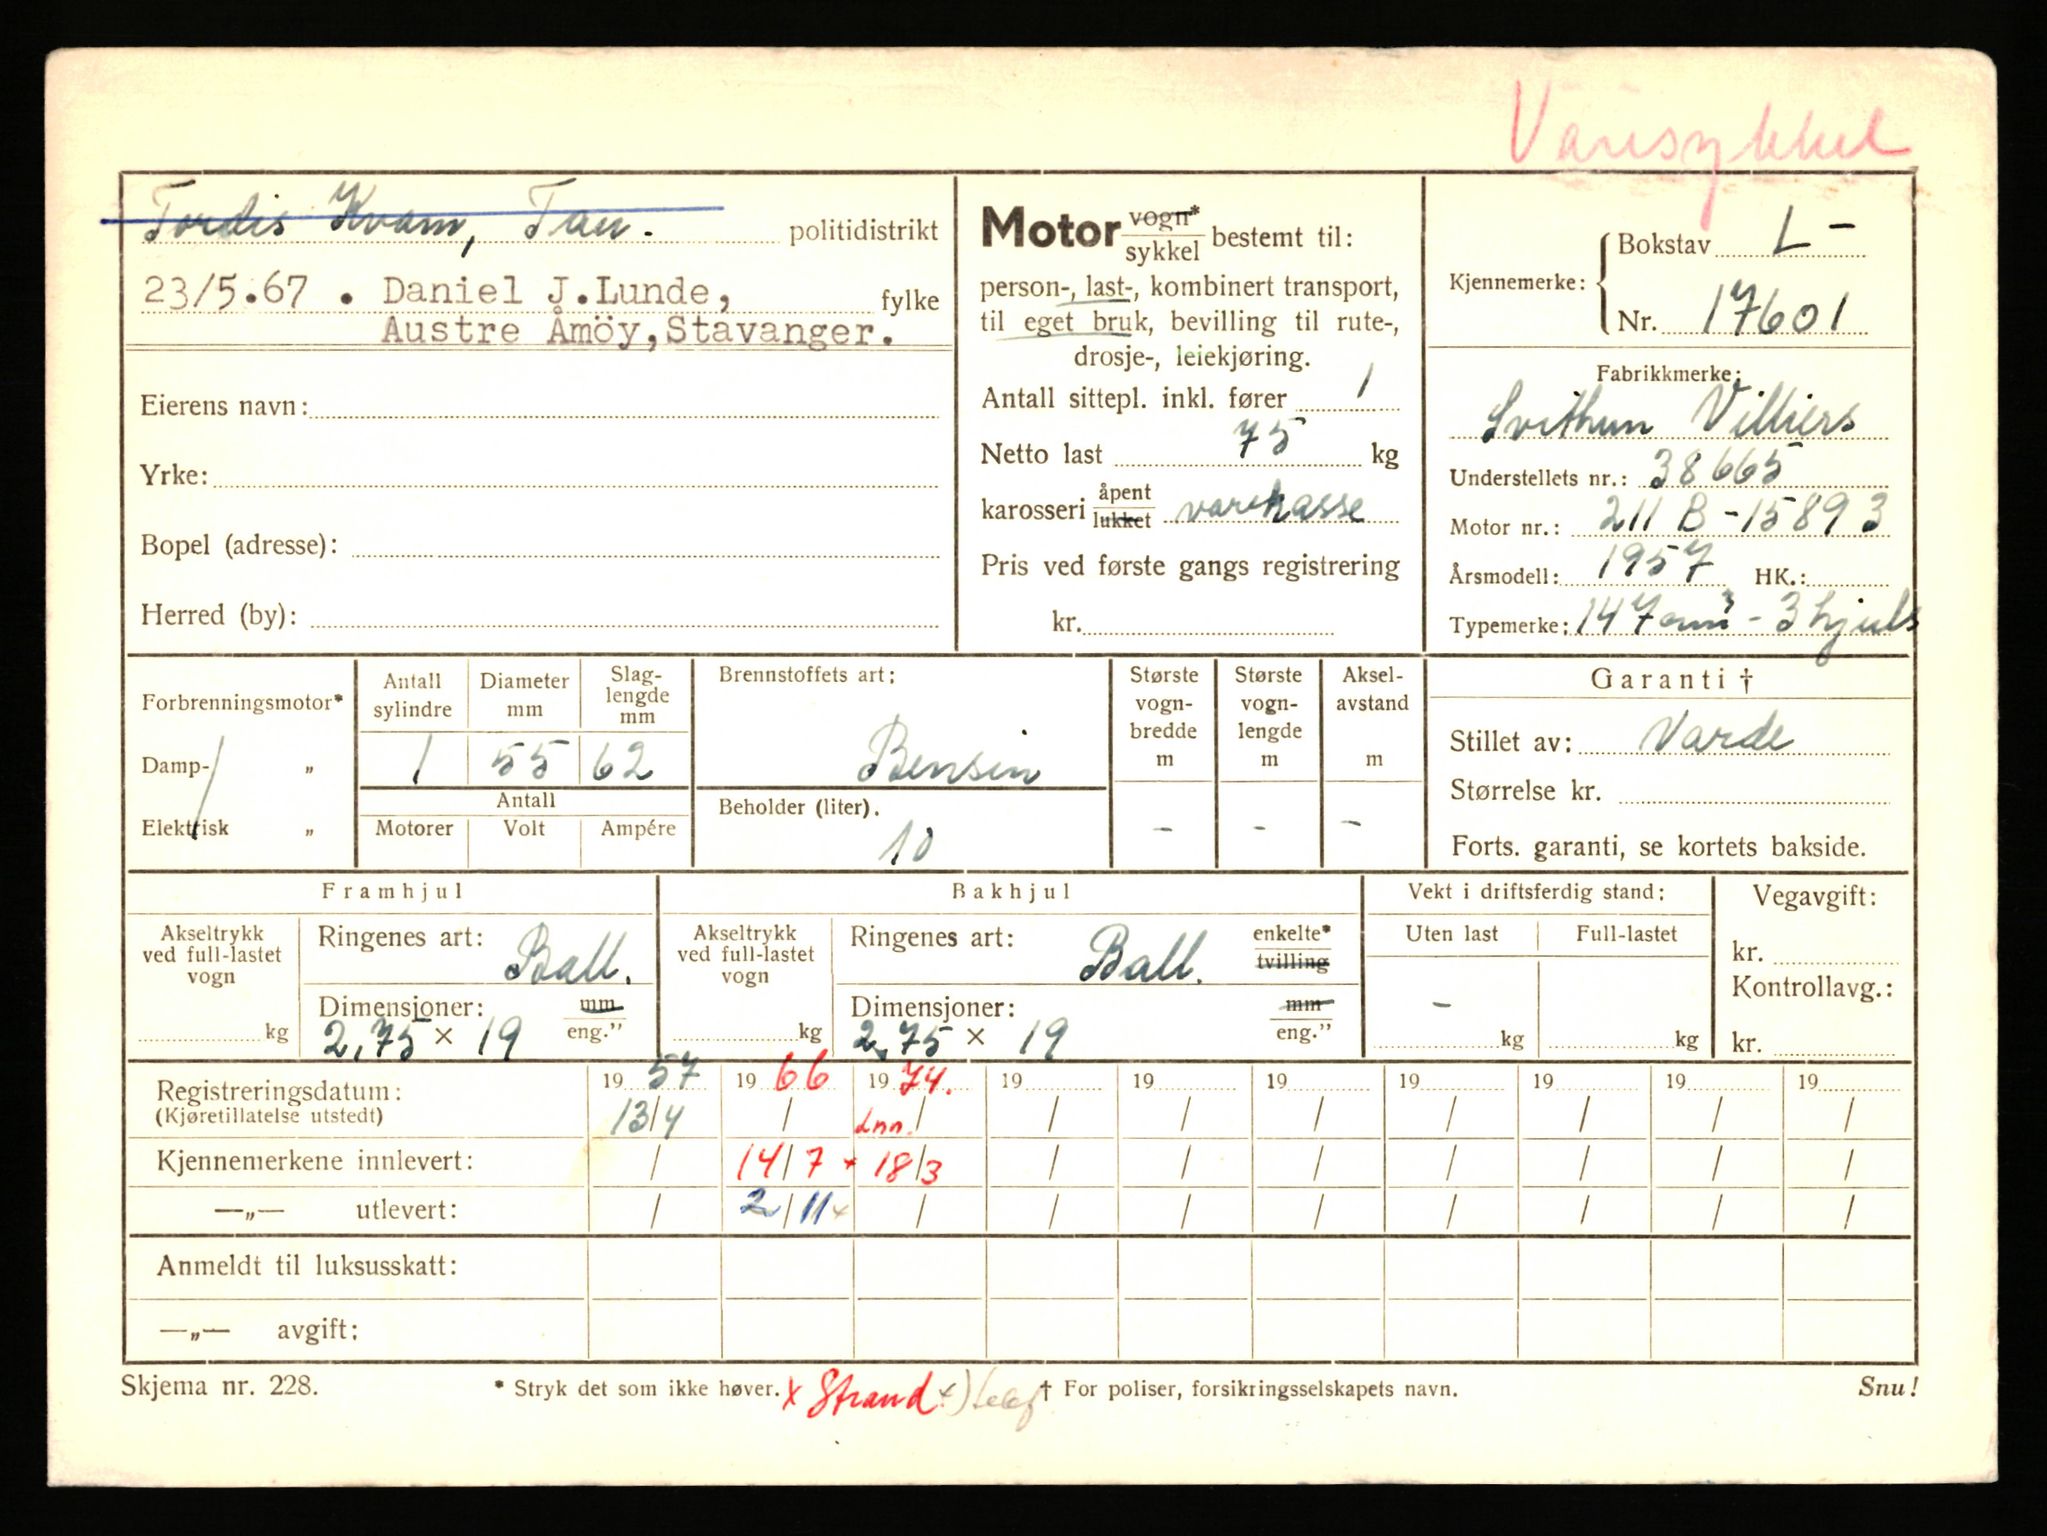 Varesykkel
Tordis Kvam, Tau. politidistrikt
23/5.67 . Daniel J.Lunde, fylke
Austre Åmöy,Stavanger.
Eierens navn:
Yrke:
Bopel (adresse):
Herred (by):
Motor vogn* / sykkel bestemt til:
person-, last-, kombinert transport,
til eget bruk, bevilling til rute-,
drosje-, leiekjøring.
Antall sittepl. inkl. fører 1
Netto last 75 kg
karosseri åpent / lukket varekasse
Pris ved første gangs registrering
kr.
Kjennemerke: Bokstav L -
Nr. 17601
Fabrikkmerke:
Svithun Villiers
Understellets nr.: 38665
Motor nr.: 211 B - 15893
Årsmodell: 1957 HK.:
Typemerke: 147 cm³ - 3 hjuls
Forbrenningsmotor*
Damp- „
Elektrisk „
Antall sylindre Diameter mm Slaglengde mm
1 55 62
Antall
Motorer Volt Ampére
Brennstoffets art:
Bensin
Beholder (liter).
10
Største vognbredde m
-
Største vognlengde m
-
Akselavstand m
-
Garanti †
Stillet av: Varde
Størrelse kr.
Forts. garanti, se kortets bakside.
Framhjul
Akseltrykk ved full-lastet vogn
kg
Ringenes art: Ball.
Dimensjoner: mm
2,75 x 19 eng.”
Bakhjul
Akseltrykk ved full-lastet vogn
kg
Ringenes art: Ball. enkelte* / tvilling
Dimensjoner: mm
2,75 x 19 eng.”
Vekt i driftsferdig stand:
Uten last Full-lastet
-
kg kg
Vegavgift:
kr.
Kontrollavg.:
kr.
Registreringsdatum: 19 57 19 66 19 74. 19 19 19 19 19 19 19
(Kjøretillatelse utstedt) 13/4 / / / / / / / / /
Kjennemerkene innlevert: / 14/7 x 18/3 / / / / / / /
—„— utlevert: / 2/11 x / / / / / / / /
Anmeldt til luksusskatt:
—„— avgift:
Skjema nr. 228. * Stryk det som ikke høver. x Strand x) † For poliser, forsikringsselskapets navn. Snu!